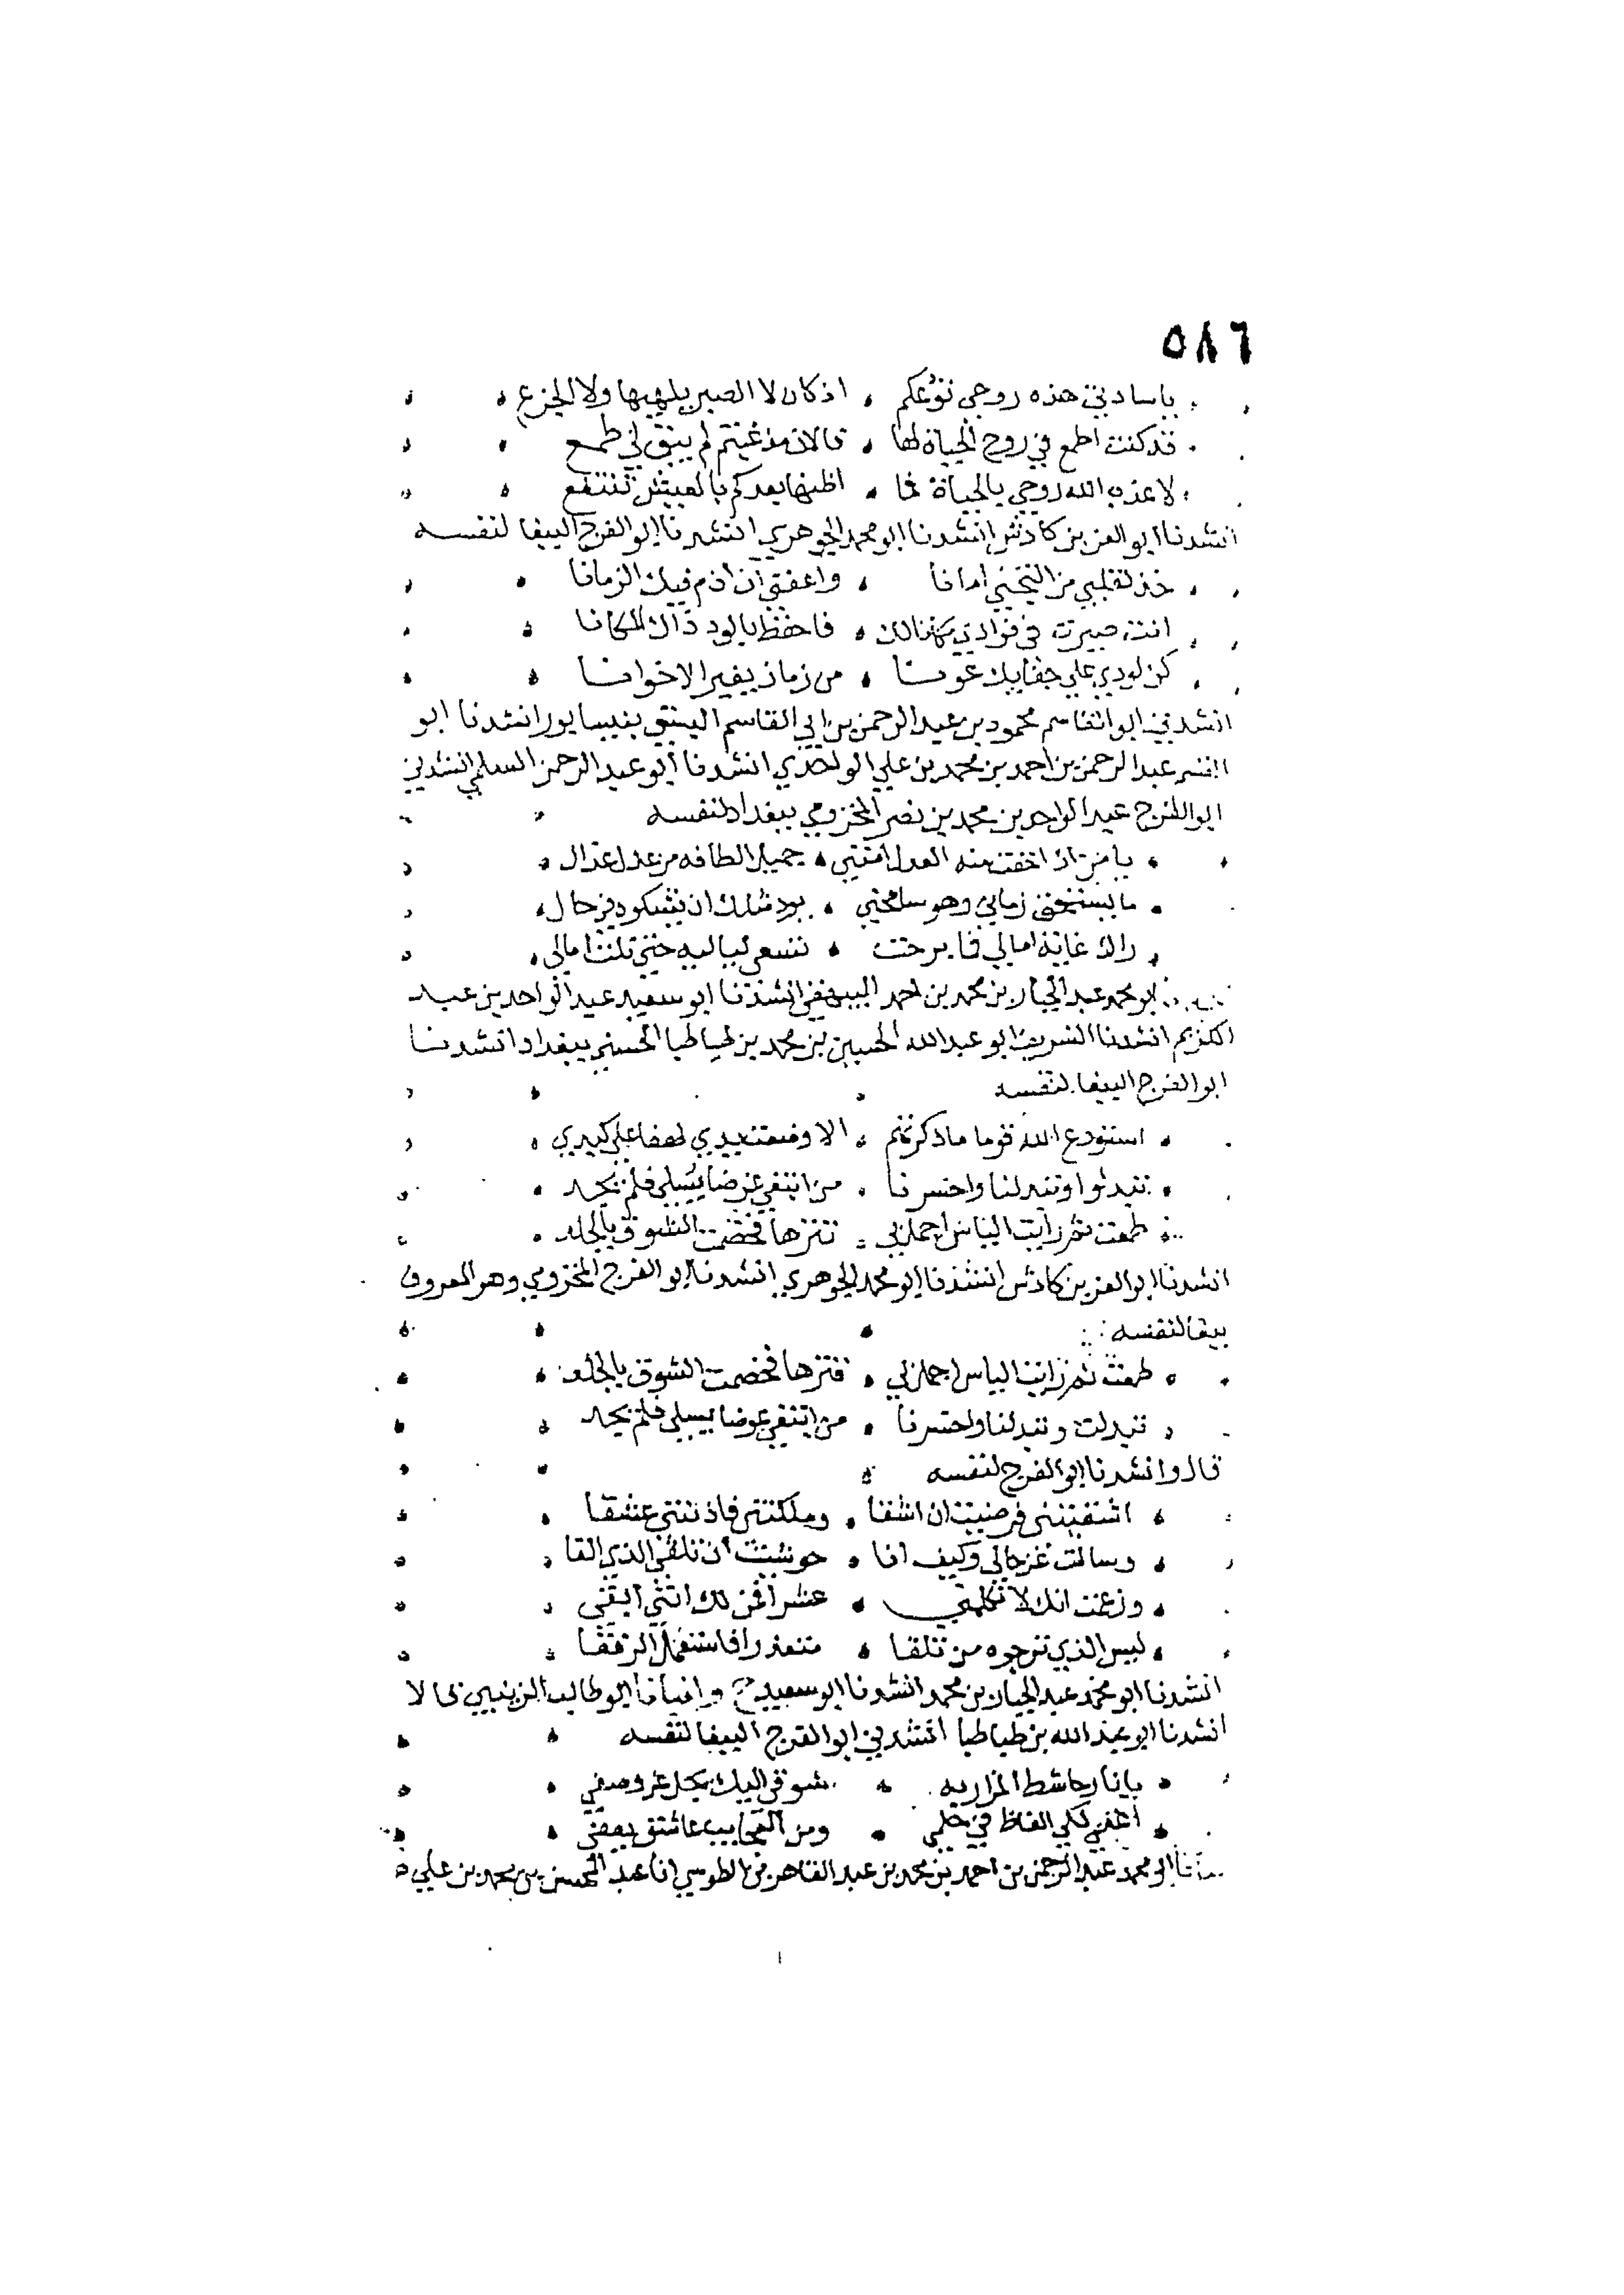 ٥٨٦
يا سادتي هذه روحي تودعكم ، اذ كان لا الصبر يلهيها ولا الجزع
قد كنت اطمع في روح الحياة لها ، فالان مذ غبتم لم يبق لي طمع
لا عذب الله روحي بالحياة فما ، اظنها بعدكم بالعيش تنتفع
انشدنا ابو العز بن كادش انشدنا ابو محمد الجوهري انشدنا ابو الفرج الببغا لنفسه
خذ لقلبي من التجني امانا ، واعفني ان اذم فيك الزمانا
انت صيرت في فوادي مكانا لك ، فاحفظ بالود ذاك المكانا
كن لودي علي جفايك عونا ، من زمان يغير الاخوانا
انشدني ابو القاسم محمود بن عبد الرحمن بن ابي القاسم البستي بنيسابور انشدنا ابو
عبد الرحمن بن احمد بن محمد بن علي الواحدي انشدنا ابو عبد الرحمن السلمي انشدني
ابو الفرج عبد الواحد بن محمد بن نصر المخزومي ببغداد لنفسه
يا من اذا اخفت منه العدل امنني ، جميل الطافه من عذل عذال
ما يستحق زماني وهو سامحني ، بود مثلك ان يشكوه في حال
راك غاية امالي فما برحت ، تسعي لياليه حتي تلت امالي
ابو محمد عبد الجبار بن محمد بن احمد البيهقي انشدنا ابو سعيد عبد الواحد بن عبد
الكريم انشدنا الشريف ابو عبد الله الحسين بن محمد بن طباطبا الحسني ببغداد انشدنا
ابو الفرج الببغا لنفسه
استودع الله قوما ما ذكرتهم ، الا وضعت يدي لهفا علي كبدي
تبدلوا وتبدلنا واخسرنا ، من ابتغي عوضا يسلي فلم يجد
طمعت ثم رايت الياس اجمل بي ، تنزها فخصمت الشوق بالجلد
انشدنا ابو العز بن كادش انشدنا ابو محمد الجوهري انشدنا ابو الفرج المخزومي وهو المعروف
ببغا لنفسه
طمعت ثم رايت الياس اجمل بي ، تنزها فخصمت الشوق بالجلد
تبدلت وتبدلنا واخسرنا ، من ابتغي عوضا يسلي فلم يجد
قال وانشدنا ابو الفرج لنفسه
اشقيتني فرضيت ان اشقا ، وملكتني فاذنتني عشقا
وسالت عن حالي وكيف انا ، حوشيت ان تلقي الذي القا
وزعمت انك لا تكلمني ، عشرا فمن لك انني ابقي
ليس الذي ترجوه من تلفا ، متعذرا فاستعمل الرفقا
انشدنا ابو محمد عبد الجبار بن محمد انشدنا ابو سعيد ح وانبانا ابو طالب الزينبي قالا
انشدنا ابو عبد الله بن طباطبا انشدني ابو الفرج الببغا لنفسه
يا نازحا شط المزار به ، شوقي اليك يجل عن وصفي
ومن العجايب عاشق يغفي
ابو محمد عبد الرحمن بن احمد بن محمد بن عبد القاهر بن الطوسي انا عبد المحسن بن محمد بن علي